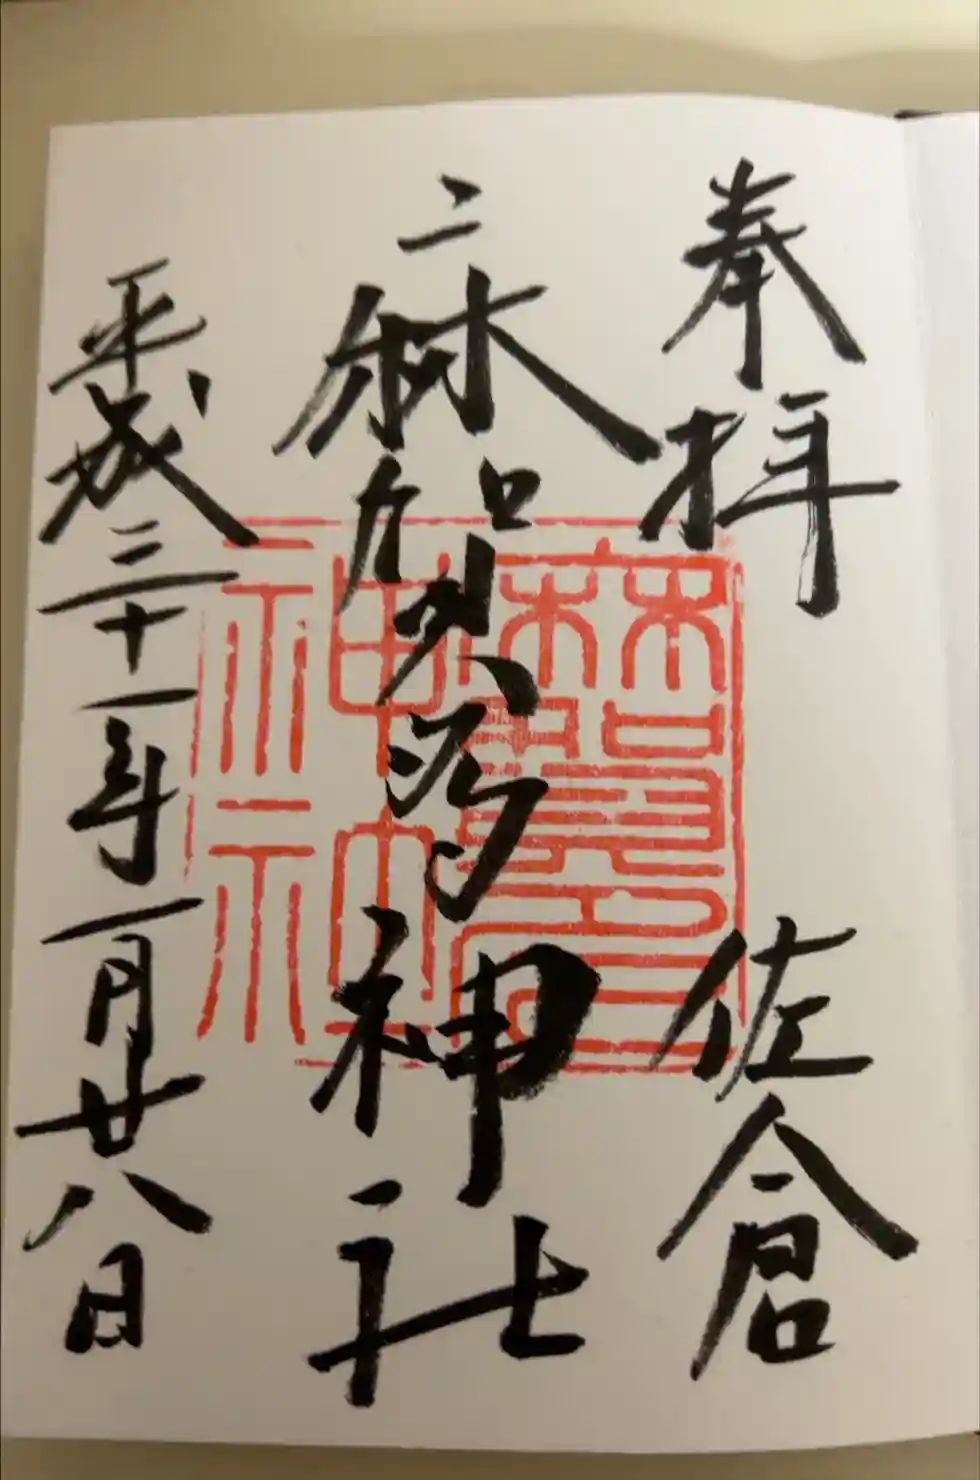 奉拝 佐倉
麻賀多神社
平成三十一年一月廿八日
麻賀多神社